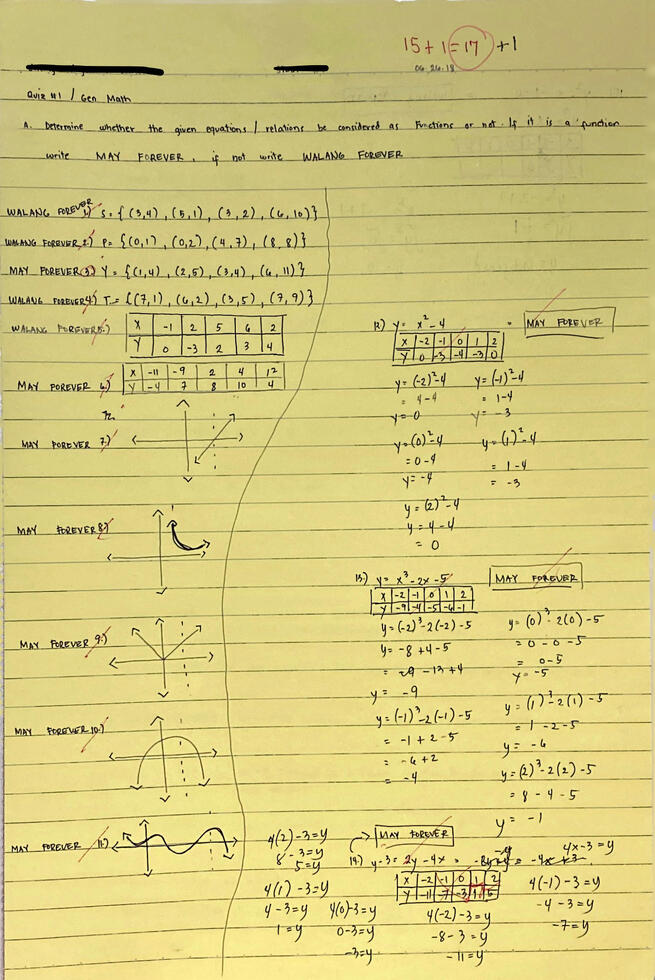 15 + 1 = 17 +1
06.26.18
Quiz #1 / Gen Math
A. Determine whether the given equations / relations be considered as Functions or not. If it is a function
write MAY FOREVER, if not write WALANG FOREVER
WALANG FOREVER 1.) S = { (3,4), (5,1), (3,2), (6,10) }
WALANG FOREVER 2.) P = { (0,1), (0,2), (4,7), (8,8) }
MAY FOREVER 3.) Y = { (1,4), (2,5), (3,4), (6,11) }
WALANG FOREVER 4.) T = { (7,1), (6,2), (3,5), (7,9) }
WALANG FOREVER 5.) X -1 2 5 6 2
Y 0 -3 2 3 4
MAY FOREVER 6.) X -11 -9 2 4 12
Y -4 7 8 10 4
MAY FOREVER 7.)
MAY FOREVER 8.)
MAY FOREVER 9.)
MAY FOREVER 10.)
MAY FOREVER 11.)
12.) y = x² - 4 = MAY FOREVER
X -2 -1 0 1 2
Y 0 -3 -4 -3 0
y = (-2)² - 4 y = (-1)² - 4
= 4 - 4 = 1 - 4
y = 0 y = -3
y = (0)² - 4 y = (1)² - 4
= 0 - 4 = 1 - 4
y = -4 = -3
y = (2)² - 4
y = 4 - 4
= 0
13.) y = x³ - 2x - 5 MAY FOREVER
X -2 -1 0 1 2
Y -9 -4 -5 -6 -1
y = (-2)³ - 2(-2) - 5 y = (0)³ - 2(0) - 5
y = -8 + 4 - 5 = 0 - 0 - 5
= - 13 + 4 = 0 - 5
y = -9 y = -5
y = (-1)³ - 2(-1) - 5 y = (1)³ - 2(1) - 5
= -1 + 2 - 5 = 1 - 2 - 5
= -6 + 2 y = -6
= -4 y = (2)³ - 2(2) - 5
= 8 - 4 - 5
y = -1
MAY FOREVER
14.) y - 3 = 2y - 4x = 4x - 3 = y
X -2 -1 0 1 2
Y -11 -7 -3 1 5
4(2) - 3 = y
8 - 3 = y
5 = y
4(1) - 3 = y
4 - 3 = y
1 = y
4(0) - 3 = y
0 - 3 = y
-3 = y
4(-2) - 3 = y
-8 - 3 = y
-11 = y
4(-1) - 3 = y
-4 - 3 = y
-7 = y